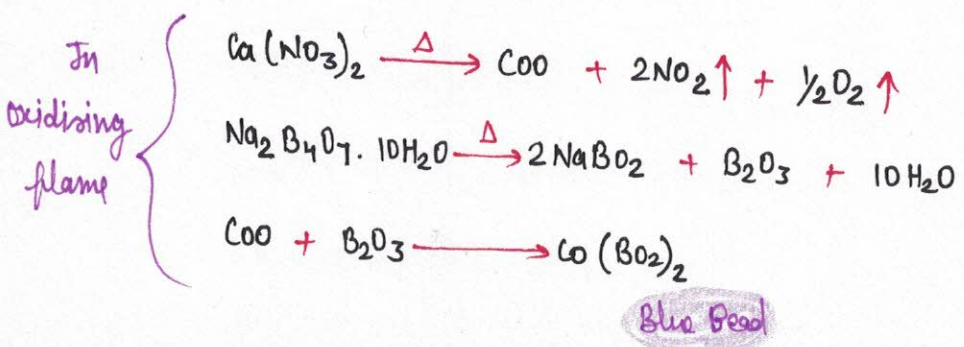 In
oxidising
flame
Ca(NO3)2 Δ→ COO + 2NO2↑ + ½O2↑
Na2B4O7. 10H2O Δ→ 2NaBO2 + B2O3 + 10H2O
COO + B2O3 → Co(BO2)2
Blue Bead